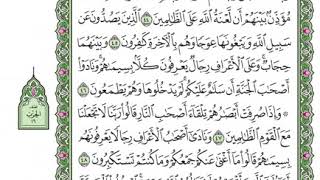 مُؤَذِّنٌ بَيْنَهُمْ أَن لَّعْنَةُ اللَّهِ عَلَى الظَّالِمِينَ ٤٤ الَّذِينَ يَصُدُّونَ عَن
سَبِيلِ اللَّهِ وَيَبْغُونَهَا عِوَجًا وَهُم بِالْآخِرَةِ كَافِرُونَ ٤٥ وَبَيْنَهُمَا
حِجَابٌ وَعَلَى الْأَعْرَافِ رِجَالٌ يَعْرِفُونَ كُلًّا بِسِيمَاهُمْ وَنَادَوْا
أَصْحَابَ الْجَنَّةِ أَن سَلَامٌ عَلَيْكُمْ لَمْ يَدْخُلُوهَا وَهُمْ يَطْمَعُونَ ٤٦
۞ وَإِذَا صُرِفَتْ أَبْصَارُهُمْ تِلْقَاءَ أَصْحَابِ النَّارِ قَالُوا رَبَّنَا لَا تَجْعَلْنَا
مَعَ الْقَوْمِ الظَّالِمِينَ ٤٧ وَنَادَىٰ أَصْحَابُ الْأَعْرَافِ رِجَالًا يَعْرِفُونَهُم
بِسِيمَاهُمْ قَالُوا مَا أَغْنَىٰ عَنكُمْ جَمْعُكُمْ وَمَا كُنتُمْ تَسْتَكْبِرُونَ ٤٨